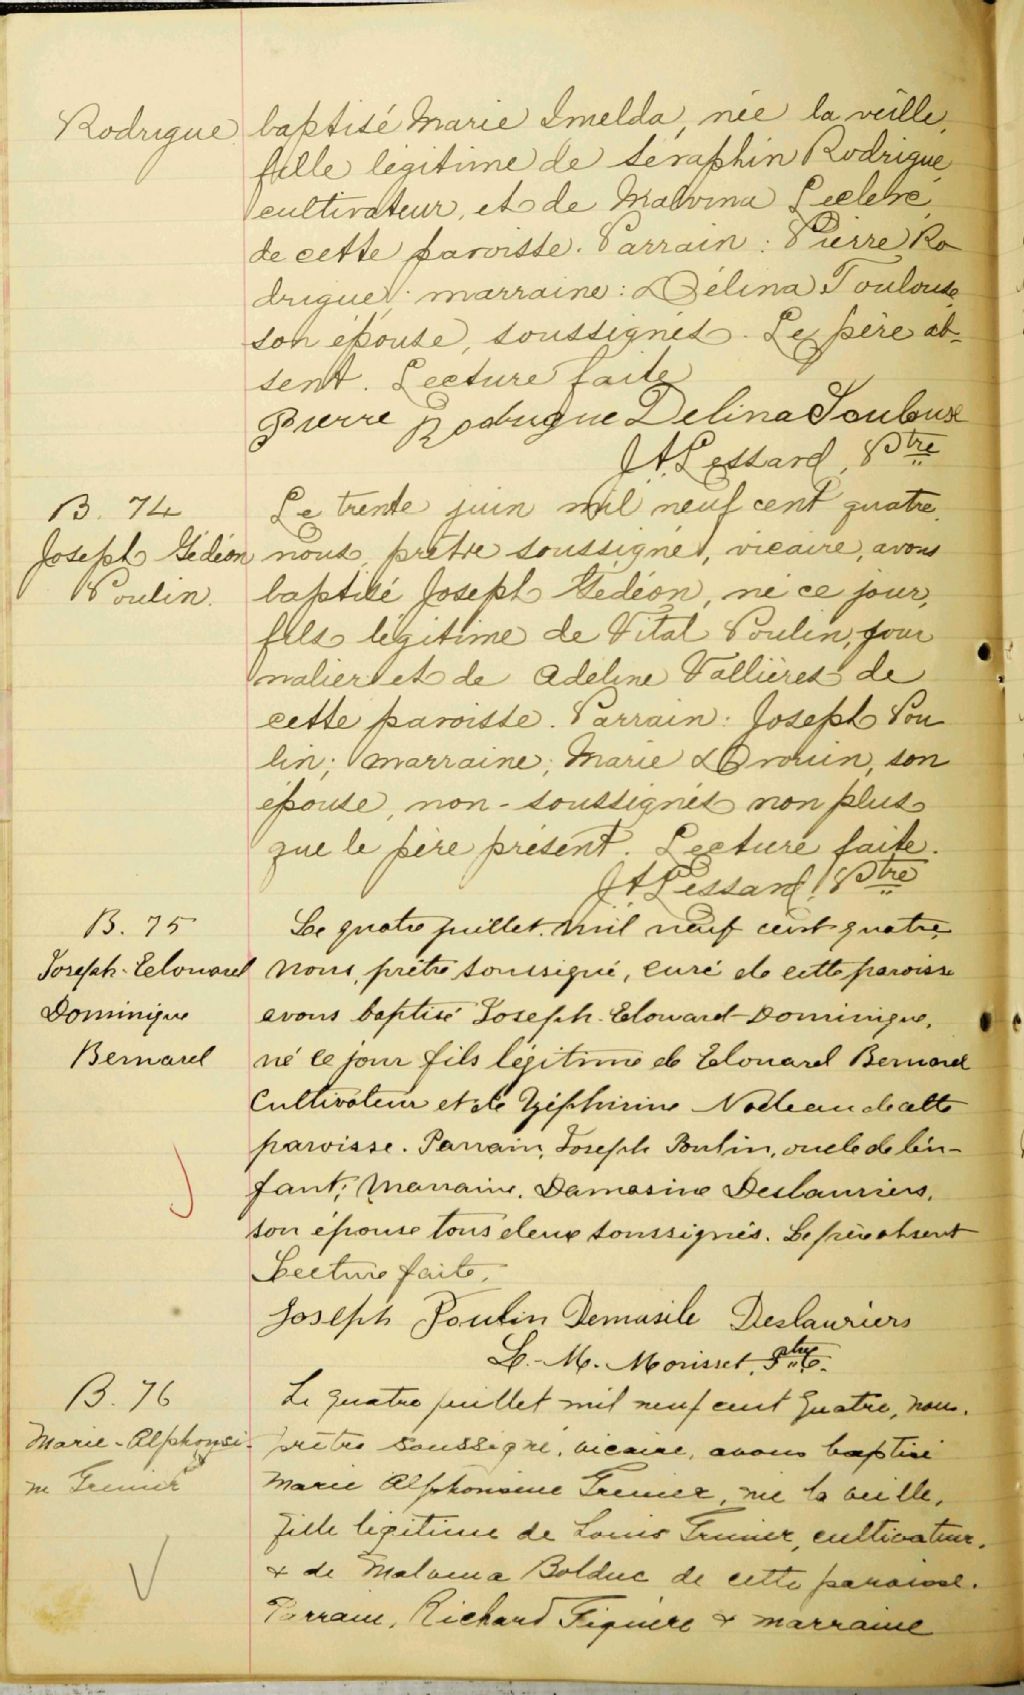 Rodrigue baptisé Marie Imelda, née la veille,
fille légitime de Séraphin Rodrigue,
cultivateur, et de Malvina Leclerc,
de cette paroisse. Parrain : Pierre Ro
drigue; marraine : Délina Toulouse,
son épouse, soussignés. Le père ab-
sent. Lecture faite
Pierre Rodrigue Delina Toulouse
J.A. Lessard, Ptre
B. 74 Le trente juin mil neuf cent quatre,
Joseph Gédéon nous, prêtre soussigné, vicaire, avons
Poulin. baptisé Joseph Gédéon, né ce jour,
fils légitime de Vital Poulin, jour
nalier et de Adeline Vallières de
cette paroisse. Parrain : Joseph Pou
lin; marraine; Marie Drouin, son
épouse, non-soussignés non plus
que le père présent. Lecture faite.
J.A. Lessard, Ptre
B. 75 Le quatre juillet mil neuf cent quatre,
Joseph-Edouard nous, prêtre soussigné, curé de cette paroisse
Dominique avons baptisé Joseph-Edouard-Dominique,
Bernard né ce jour fils légitime de Edouard Bernard
Cultivateur et de Zéphirine Nadeau de cette
paroisse. Parrain, Joseph Poulin, oncle de l'en-
fant; Marraine, Damasine Deslauriers,
son épouse tous deux soussignés. Le père absent
Lecture faite.
Joseph Poulin Demasile Deslauriers
L.-M. Morisset, Ptre.
B. 76 Le quatre juillet mil neuf cent quatre, nous,
Marie-Alphonsi- prêtre soussigné, vicaire, avons baptisé
ne Grenier Marie Alphonsine Grenier, née la veille,
fille légitime de Louis Grenier, cultivateur,
& de Malvina Bolduc de cette paroisse.
Parrain, Richard Giguère & marraine